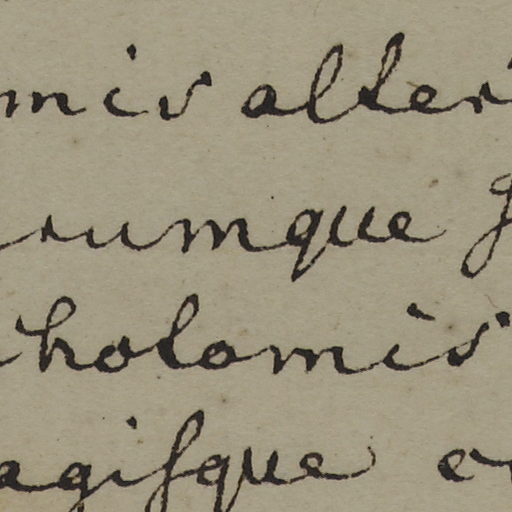 mis alter
rumque
tholomis
agisque